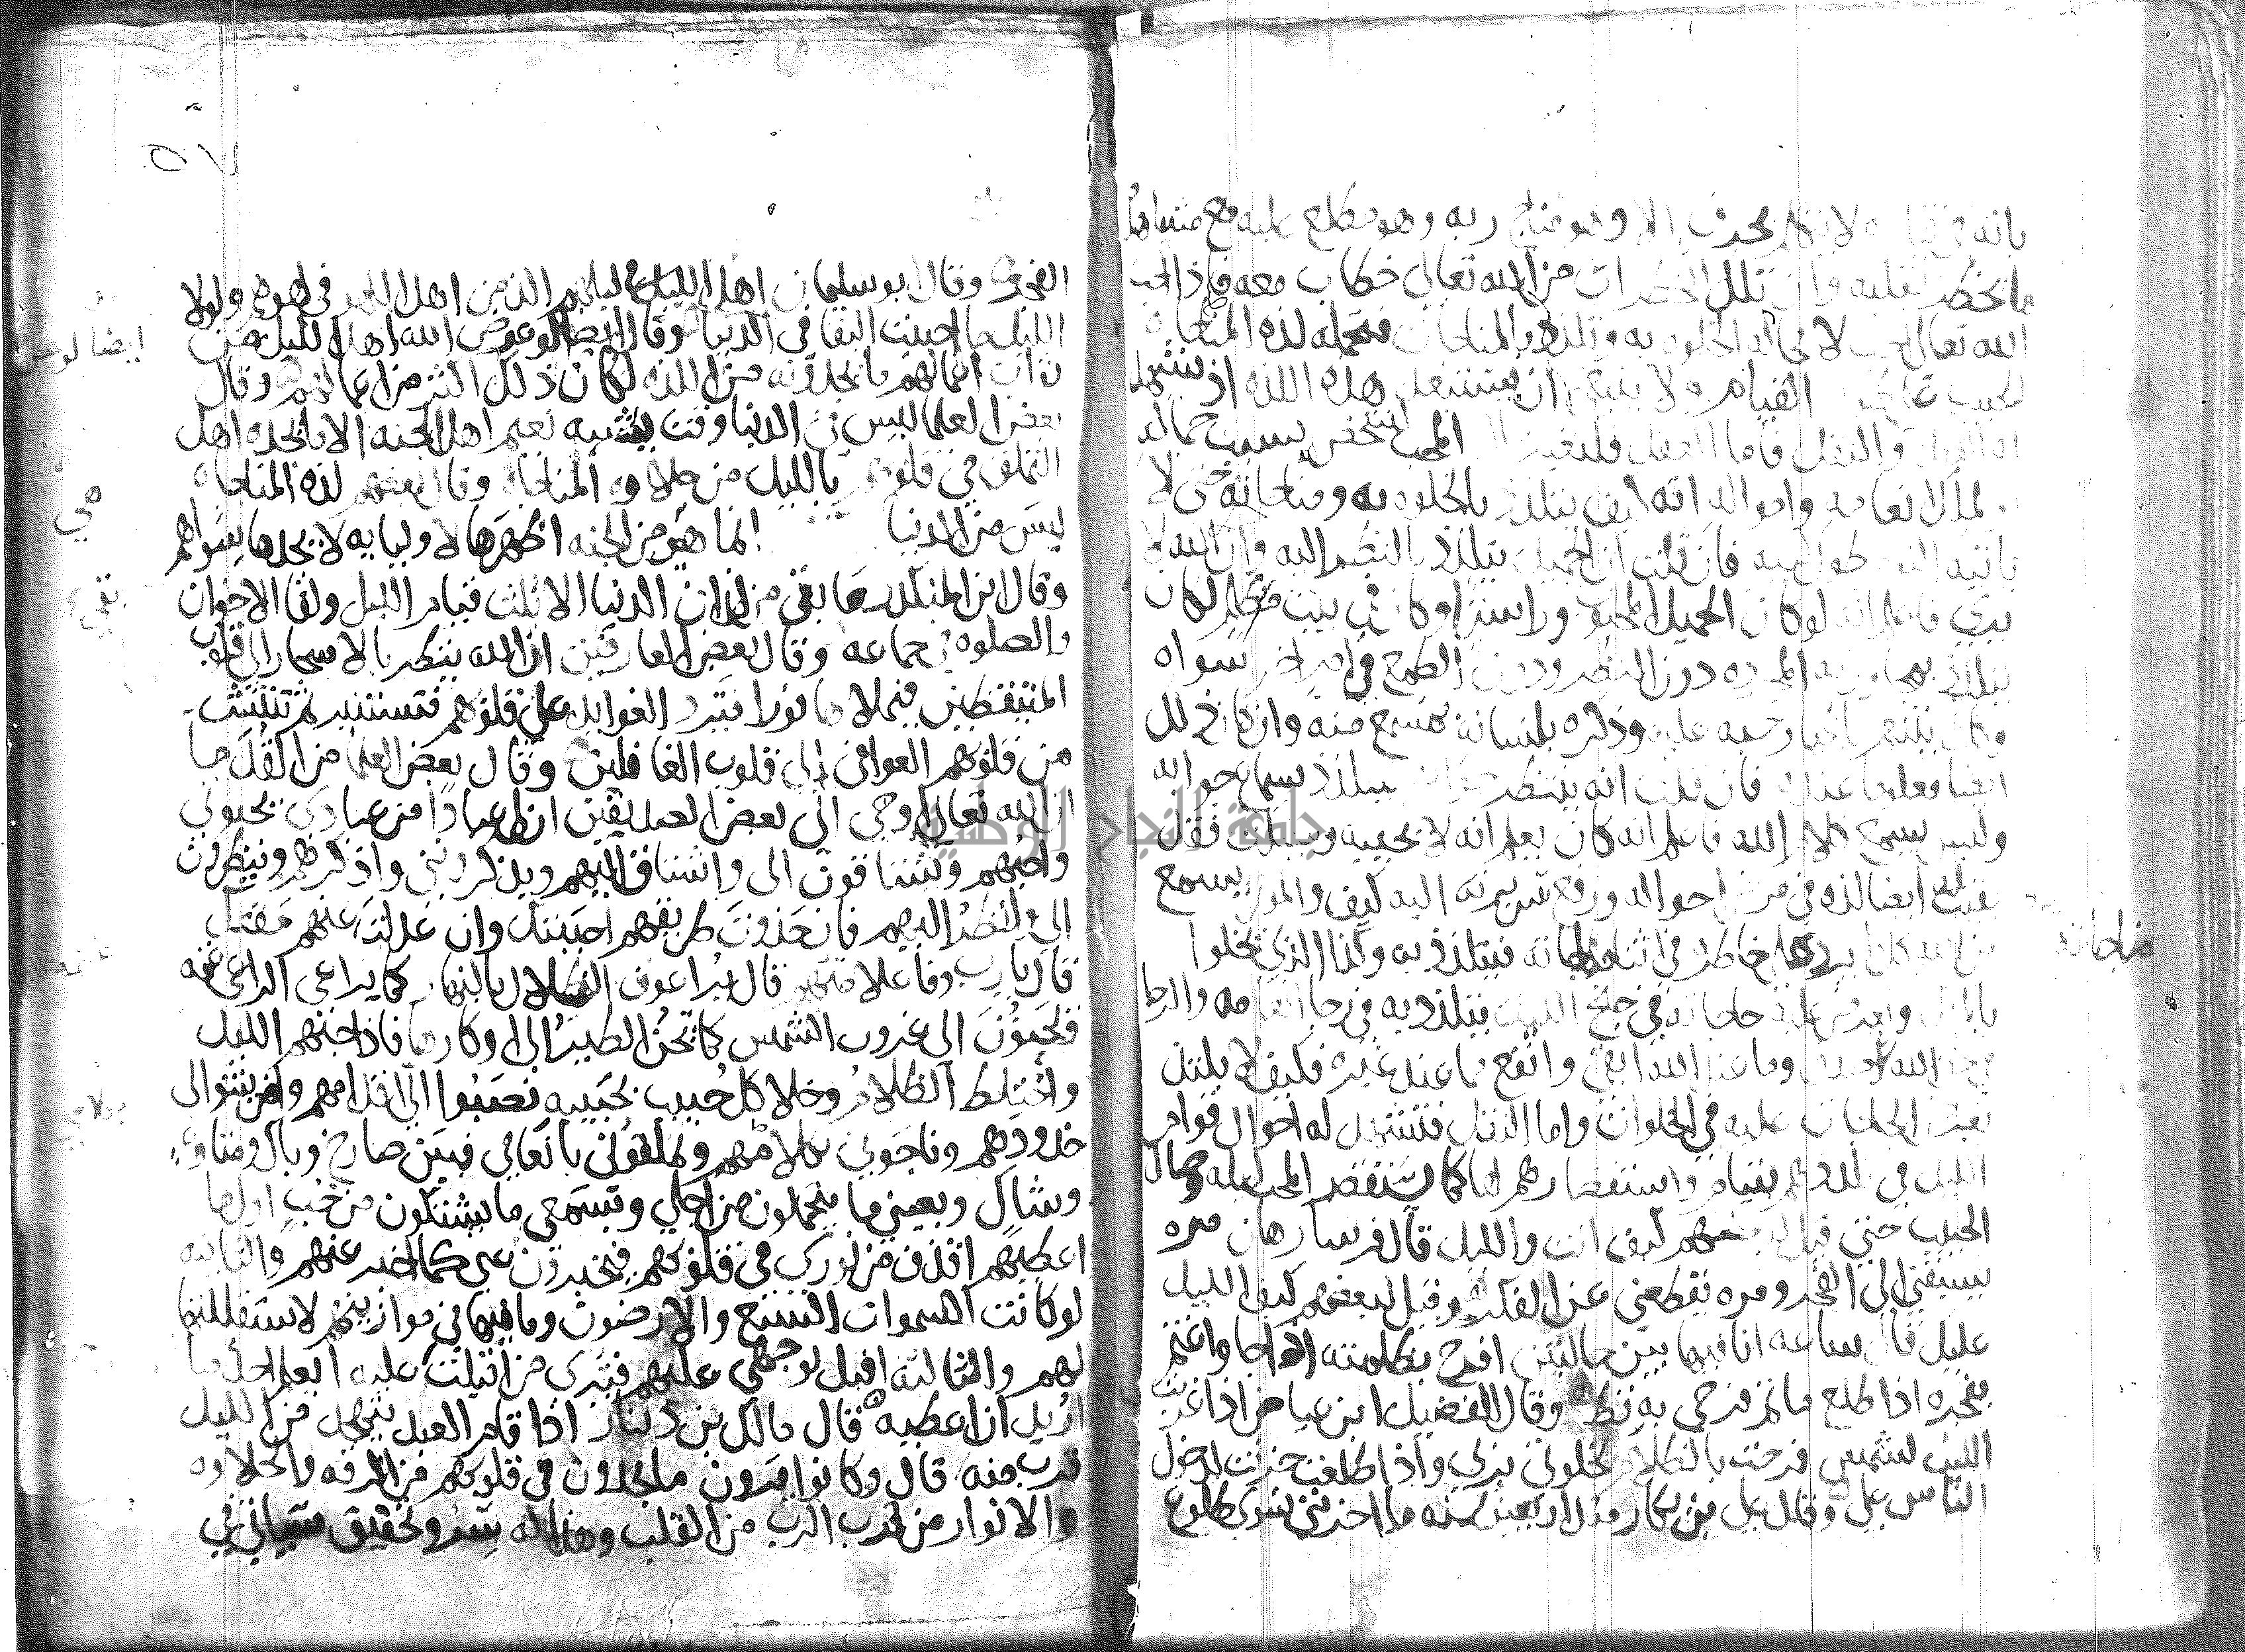 بانه في لا يتكلم بحرف الا وهو مناجي ربه وهو مطلع عليه مع مشاهدة
ما يخطر بقلبه وان تلك الخطرات من الله تعالى خطاب معه فاذا احب
الله تعالى احب لا محالة الخلوه به وتلذذ بالمناجات فتحمله لذه المناجاة
الحبيب على القيام ولا ينبغي ان يستبعد هذه اللذه اذ يشهد
لها العقل والنقل فاما العقل فليعتبر المحب لشخص بسبب جماله
او لملك انعامه وامواله انه كيف يتلذذ بالخلوه به ومناجاته حتى لا
ياتيه النوم طول ليله فان قلت ان الجميل يتلذذ بالنظر اليه وان الله لا
يرى فاعلم انه لو كان الجميل المحبوب ورا ستر او كان في بيت مظلم لكان
يتلذذ بمجاورته المجرده دون النظر ودون الطمع في امر اخر سواه
وكان يتنعم باظهار حبه عليه وذكره بلسانه بمسمع منه وان كان ذلك
ايضا معلوما عنده فان قلت انه ينتظر جوابه فيتلذذ بسماع جوابه
وليس يسمع كلام الله فاعلم انه كان يعلم انه لا يجيبه ويسكت فقد
بقيت ايضا لذه في عرض احواله ورفع سريرته اليه كيف والموقن يسمع
من الله كل ما يرد على خاطره في اثنا مناجاته فيتلذذ به وكذا الذي يخلوا
مناجاته
بالملك ويعرض عليه حاجاته في جنح الليل يتلذذ به في رجا انعامه والرجا
في حق الله اصدق وما عند الله ابقى وانفع مما عند غيره فكيف لا يلتذ
بعرض الحاجات عليه في الخلوات واما النقل فتشهد له احوال قوام
الليل في تلذذهم بقيام واستقصارهم لها كما يستقصر المحب ليله وصال
الحبيب حتى قيل لبعضهم كيف انت والليل قال فرسا رهان مره
يسبقني الى الفجر ومره يقطعني عن الفكر وقيل لبعضهم كيف الليل
عليك قال ساعه انا فيها بين حالتين افرح بظلمته اذا جا واغتم
بفجره اذا طلع ما تم فرحي به قط وقال الفضيل ابن عياض اذا غربت
الشمس فرحت بالظلام لخلوتي بربي واذا طلعت حزنت لدخول
الناس علي وقال علي بن بكار منذ اربعين سنه ما احزنني سوى طلوع
٥٧
الفجر وقال ابو سليمان اهل الليل في ليلهم الذ من اهل اللهو في لهوهم ولولا
الليل ما احببت البقا في الدنيا وقال ايضا لو عوض الله اهل الليل من
ايضا لو عوض
ثواب اعمالهم ما يجدونه من اللذه لكان ذلك اكثر من اعمالهم وقال
بعض العلما ليس في الدنيا وقت يشبه نعيم اهل الجنه الا ما يجده اهل
التملق في قلوبهم بالليل من حلاوه المناجاة وقال بعضهم لذه المناجاه
ليس من الدنيا انما هو من الجنه اظهرها لاوليايه لا يجدها سواهم
هي
وقال ابن المنكدر ما بقي من لذات الدنيا الا ثلث قيام الليل ولقا الاخوان
والصلوه في جماعه وقال بعض العارفين ان الله ينظر بالاسحار الى قلوب
المتيقظين فيملاها نورا فترد الفوايد على قلوبهم فتستنير ثم تنتشر
من قلوبهم العوافي الى قلوب الغافلين وقال بعض العلما من القدما
ان الله تعالى اوحى الى بعض الصديقين ان لي عبادا من عبادي يحبوني
واحبهم ويشتاقون الي واشتاق اليهم ويذكرونني واذكرهم وينظرون
الي وانظر اليهم فان حذوت طريقهم احببتك وان عدلت عنهم مقتك
قال يا رب وما علامتهم قال يراعون الظلال بالنهار كما يراعي الراعي غنمه
فيحنون الى غروب الشمس كما تحن الطير الى اوكارها فاذا جنهم الليل
واختلط الظلام وخلا كل حبيب بحبيبه نصبوا الي اقدامهم وافترشوا لي
خدودهم وناجوني بكلامهم وتملقوني بانعامي فبين صارخ وباك ومتاوه
وشاك وبعيني ما يتحملون من اجلي وبسمعي ما يشتكون من حبي اول ما
اعطيهم اقذف من نوري في قلوبهم فيخبرون عني كما اخبر عنهم والثانيه
لو كانت السموات السبع والارضون وما فيها في موازينهم لاستقللتها
لهم والثالثه اقبل بوجهي عليهم فترى من اقبلت عليه ايعلم احد ما
اريد ان اعطيه قال مالك بن دينار اذا قام العبد يتهجد من الليل
قرب منه قال وكانوا يرون ما يجدون في قلوبهم من الرقه والحلاوه
والانوار من قرب الرب من القلب وهذا له سر وتحقيق سياتي في